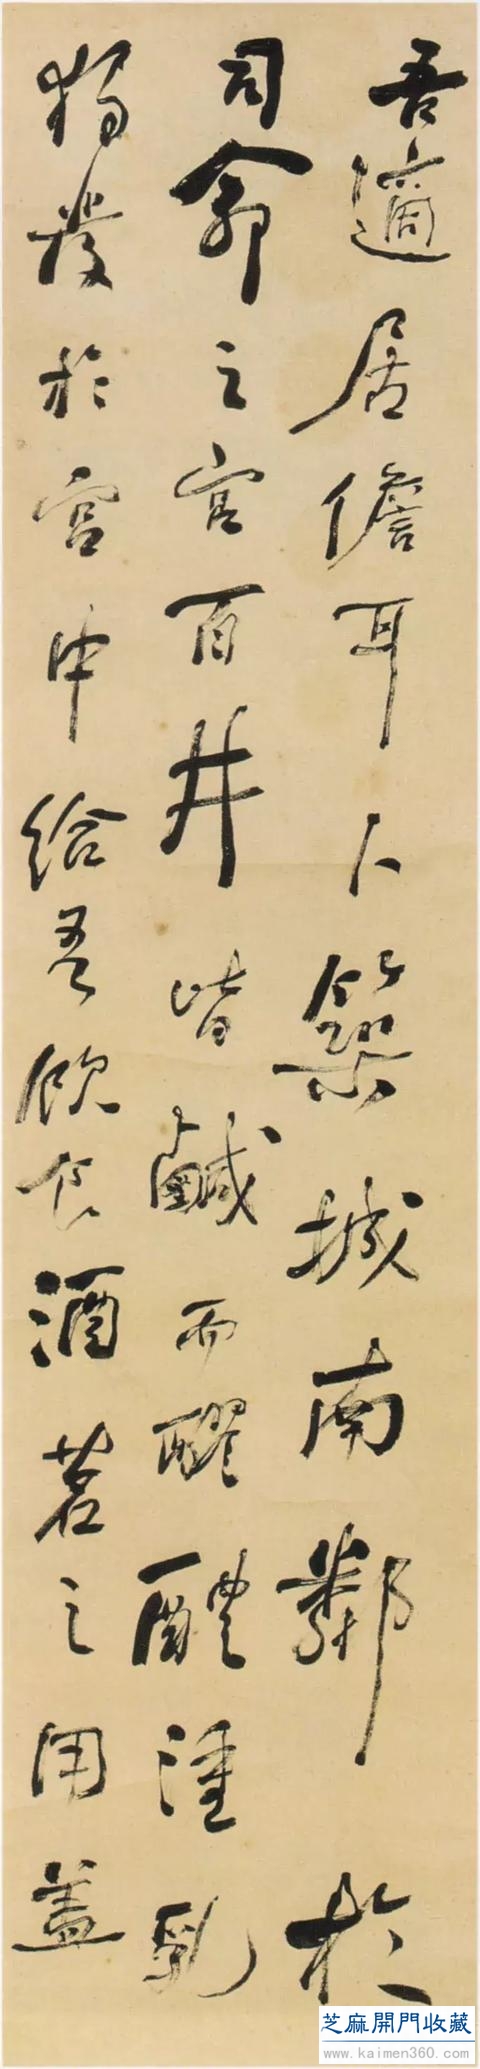 吾適居儋耳卜築城南鄰於
司命之宮百井皆鹹而醪醴湩乳
獨發於宮中給吾飲食酒茗之用盖
芝麻開門收藏
www.kaimen360.com